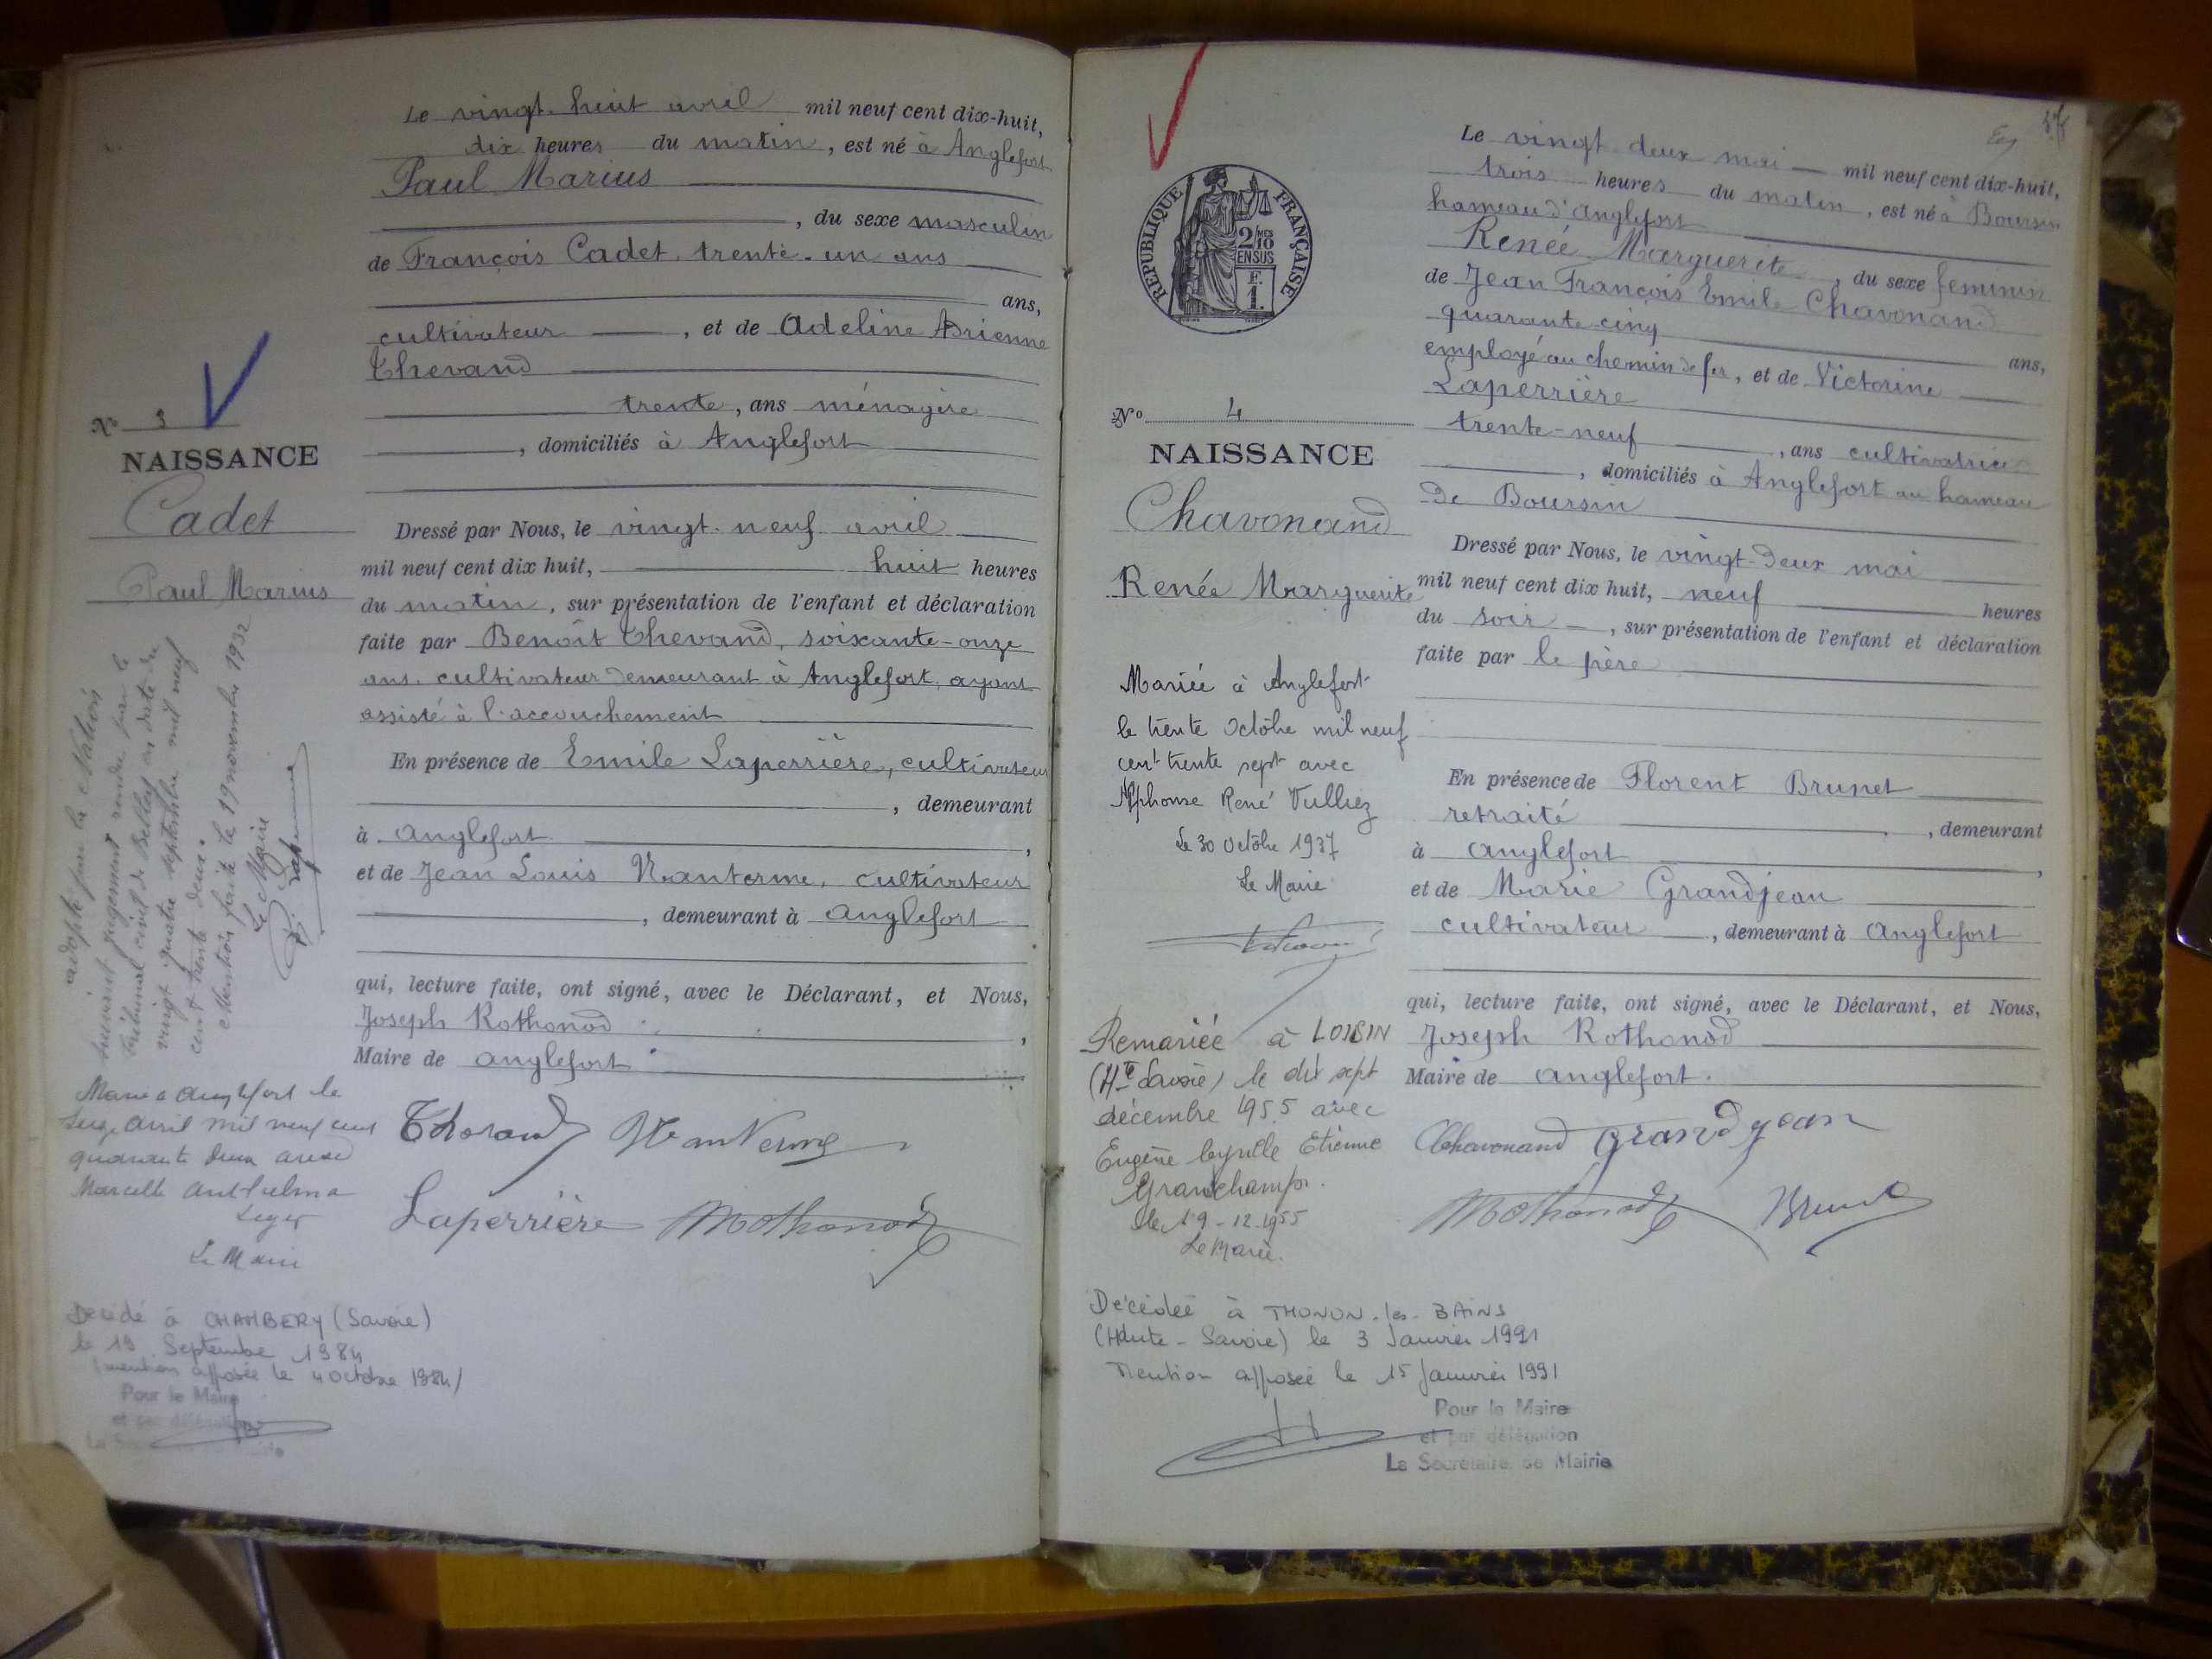 Le vingt-huit avril mil neuf cent dix-huit,
dix heures du matin, est né à Anglefort
Paul Marius
, du sexe masculin
de François Cadet, trente-un ans
ans,
cultivateur, et de Adeline Adrienne
Thevand
trente, ans ménagère
, domiciliés à Anglefort
N° 3
NAISSANCE
Cadet
Paul Marius
Dressé par Nous, le vingt-neuf avril
mil neuf cent dix huit, huit heures
du matin, sur présentation de l'enfant et déclaration
faite par Benoît Thevand, soixante-onze
ans, cultivateur demeurant à Anglefort, ayant
assisté à l'accouchement
En présence de Emile Laperrière, cultivateur
, demeurant
à Anglefort,
et de Jean Louis Nanterme, cultivateur
, demeurant à Anglefort
qui, lecture faite, ont signé, avec le Déclarant, et Nous,
Joseph Rothonod,
Maire de Anglefort
adopté par la Nation
suivant jugement rendu par le
Tribunal civil de Belley en date du
vingt quatre septembre mil neuf
cent trente deux.
Mention faite le 19 novembre 1932
Le Maire
Marié à Anglefort le
seize avril mil neuf cent
quarante deux avec
Marcelle Anthelma
Leger
Le Maire
Laperrière
Décédé à CHAMBERY (Savoie)
le 19 Septembre 1984
(mention apposée le 4 octobre 1984)
Pour le Maire
et par délégation
Eng
REPUBLIQUE FRANÇAISE
2/10 MES
EN SUS
F.
1.
Le vingt-deux mai mil neuf cent dix-huit,
trois heures du matin, est né à Boursin
hameau d'Anglefort
Renée Marguerite, du sexe feminin
de Jean François Emile Chavonand
quarante-cinq ans,
employé au chemin de fer, et de Victorine
Laperrière
trente-neuf, ans cultivatrice
, domiciliés à Anglefort au hameau
de Boursin
N° 4
NAISSANCE
Chavonand
Renée Marguerite
Dressé par Nous, le vingt-deux mai
mil neuf cent dix huit, neuf heures
du soir, sur présentation de l'enfant et déclaration
faite par le père
En présence de Florent Brunet
retraité, demeurant
à Anglefort,
et de Marie Grandjean
cultivateur, demeurant à Anglefort
qui, lecture faite, ont signé, avec le Déclarant, et Nous,
Joseph Rothonod
Maire de Anglefort.
Chavonand Grandjean
Brunet
Mariée à Anglefort
le trente Octobre mil neuf
cent trente sept avec
Alphonse René Vulliez
Le 30 Octobre 1937
Le Maire
Remariée à LOISIN
(Hte Savoie) le dix sept
décembre 1955 avec
Eugène Cyrille Etienne
Grandchamp.
le 19-12-1955
Le Maire.
Décédée à THONON-les-BAINS
(Haute-Savoie) le 3 Janvier 1991
Mention apposée le 15 Janvier 1991
Pour le Maire
et par délégation
Le Secrétaire de Mairie